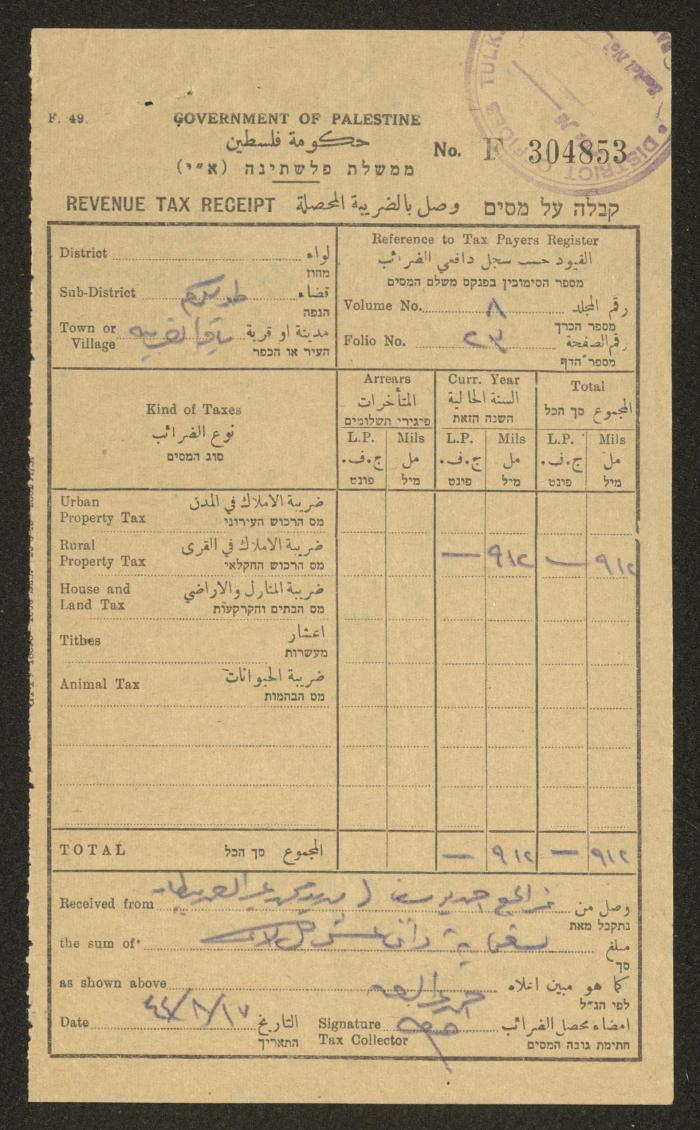 DISTRICT OFFICES TULK
F. 49.
GOVERNMENT OF PALESTINE
حكومة فلسطين
ממשלת פלשתינה (א״י)
No. F 304853
REVENUE TAX RECEIPT وصل بالضريبة المحصلة קבלה על מסים
District لواء
מחוז
Sub-District طولكرم قضاء
הנפה
Town or Village باقة الغربية مدينة او قرية
העיר או הכפר
Reference to Tax Payers Register
القيود حسب سجل دافعي الضرائب
מספר הסימוכין בפנקס משלם המסים
Volume No. ٨ رقم المجلد
מספר הכרך
Folio No. ٢٣ رقم الصفحة
מספר הדף
Kind of Taxes
نوع الضرائب
סוג המסים
Arrears
المتأخرات
פיגירי תשלומים
Curr. Year
السنة الحالية
השנה הזאת
Total
المجموع סך הכל
L.P. Mils L.P. Mils L.P. Mils
ج.ف. مل ج.ف. مل ج.ف. مل
פונט מיל פונט מיל פונט מיל
Urban Property Tax ضريبة الاملاك في المدن
מס הרכוש העירוני
Rural Property Tax ضريبة الاملاك في القرى — ٩١٢ — ٩١٢
מס הרכוש החקלאי
House and Land Tax ضريبة المنازل والاراضي
מס הבתים והקרקעות
Tithes اعشار
מעשרות
Animal Tax ضريبة الحيوانات
מס הבהמות
TOTAL المجموع סך הכל — ٩١٢ — ٩١٢
Received from وصل من
נתקבל מאת
the sum of مبلغ
סך
as shown above كما هو مبين اعلاه
לפי הנ״ל
Date ٤٤/٨/١٧ التاريخ
התאריך
Signature Tax Collector امضاء محصل الضرائب
חתימת גובה המסים